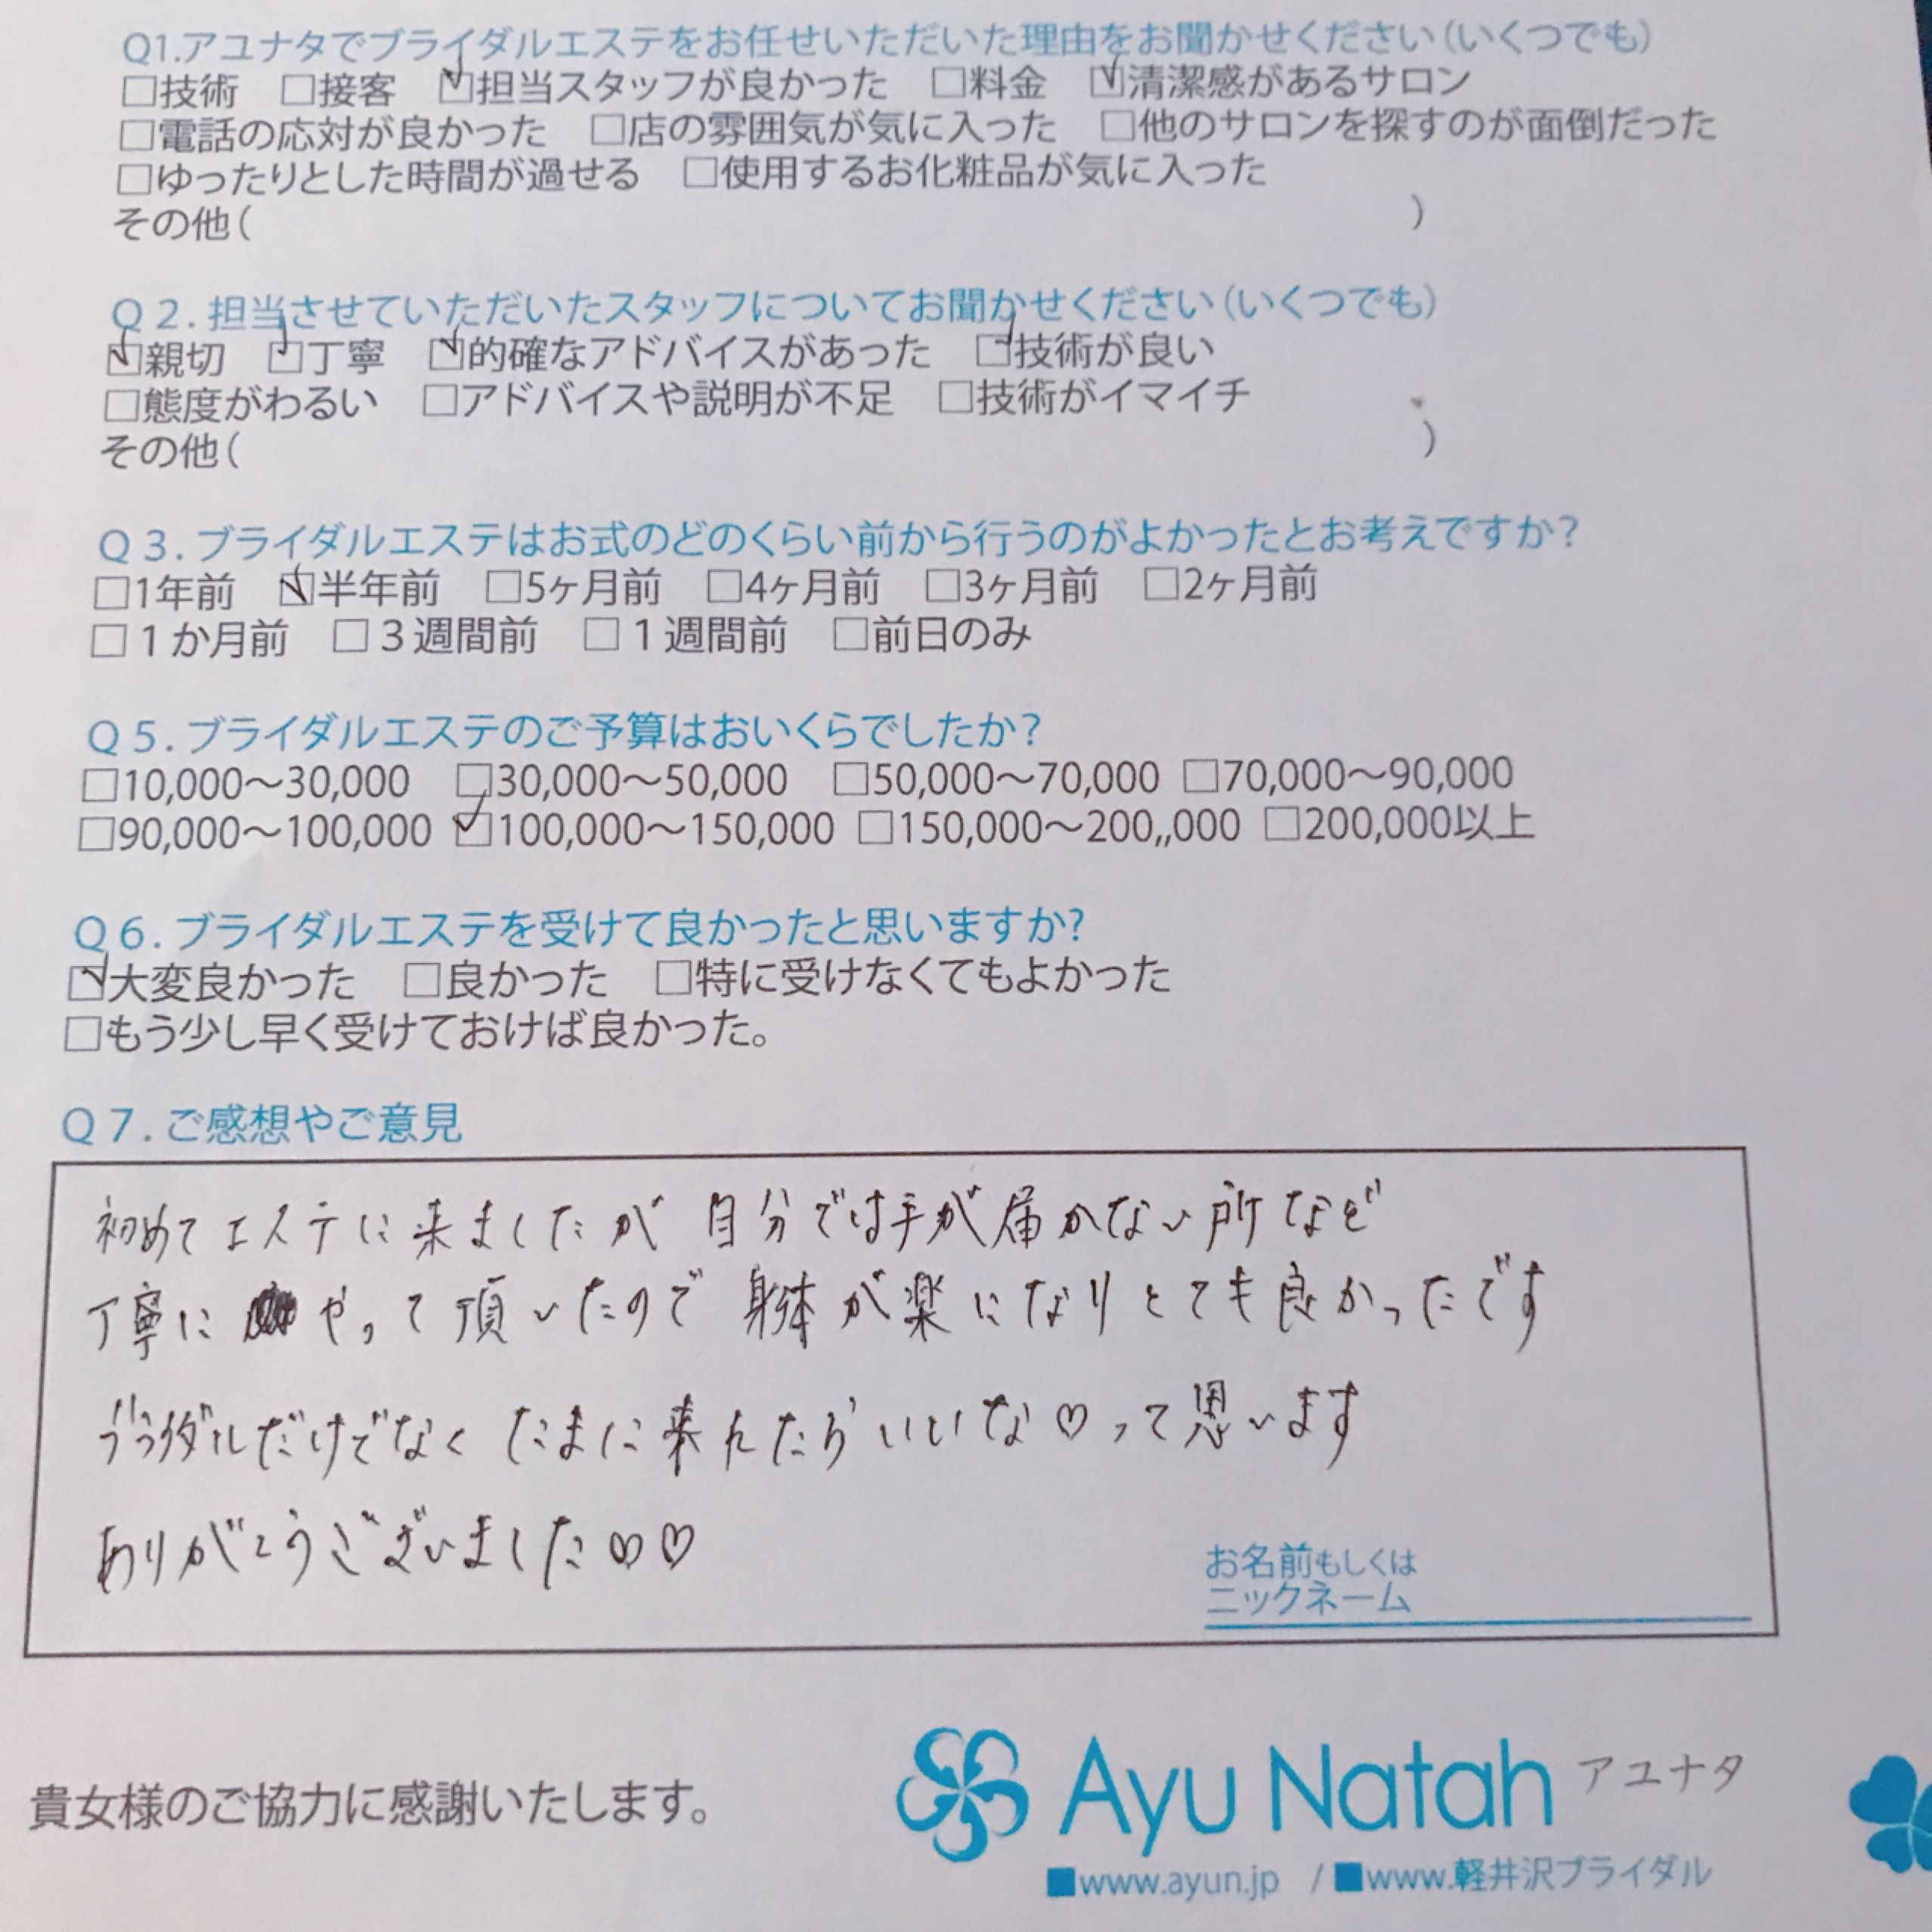 Q1.アユナタでブライダルエステをお任せいただいた理由をお聞かせください(いくつでも)
□技術 □接客 ☑担当スタッフが良かった □料金 ☑清潔感があるサロン
□電話の応対が良かった □店の雰囲気が気に入った □他のサロンを探すのが面倒だった
□ゆったりとした時間が過せる □使用するお化粧品が気に入った
その他( )
Q2.担当させていただいたスタッフについてお聞かせください(いくつでも)
☑親切 ☑丁寧 ☑的確なアドバイスがあった ☑技術が良い
□態度がわるい □アドバイスや説明が不足 □技術がイマイチ
その他( )
Q3.ブライダルエステはお式のどのくらい前から行うのがよかったとお考えですか?
□1年前 ☑半年前 □5ヶ月前 □4ヶ月前 □3ヶ月前 □2ヶ月前
□1か月前 □3週間前 □1週間前 □前日のみ
Q5.ブライダルエステのご予算はおいくらでしたか?
□10,000〜30,000 □30,000〜50,000 □50,000〜70,000 □70,000〜90,000
□90,000〜100,000 ☑100,000〜150,000 □150,000〜200,,000 □200,000以上
Q6.ブライダルエステを受けて良かったと思いますか?
☑大変良かった □良かった □特に受けなくてもよかった
□もう少し早く受けておけば良かった。
Q7.ご感想やご意見
初めてエステに来ましたが 自分では手が届かない所など
丁寧に やって頂いたので 身体が楽になりとても良かったです
ブライダルだけでなく たまに来れたらいいな♡って思います
ありがとうございました♡♡
お名前もしくは
ニックネーム
貴女様のご協力に感謝いたします。
Ayu Natah アユナタ
■www.ayun.jp /■www.軽井沢ブライダル